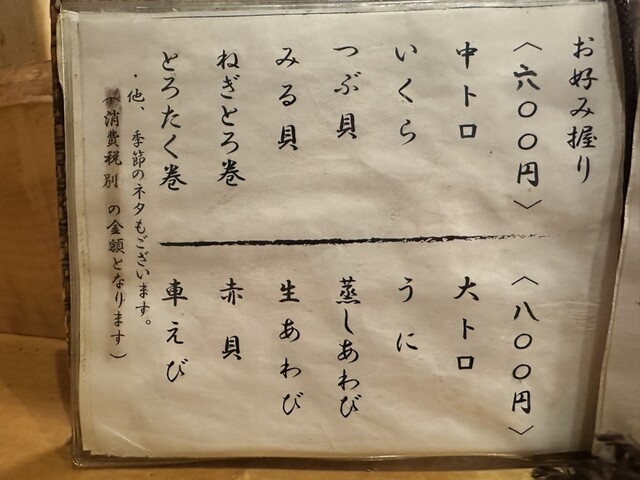 お好み握り
〈六〇〇円〉
中トロ
いくら
つぶ貝
みる貝
ねぎとろ巻
とろたく巻
〈八〇〇円〉
大トロ
うに
蒸しあわび
生あわび
赤貝
車えび
・他、季節のネタもございます。
消費税別 の金額となります)